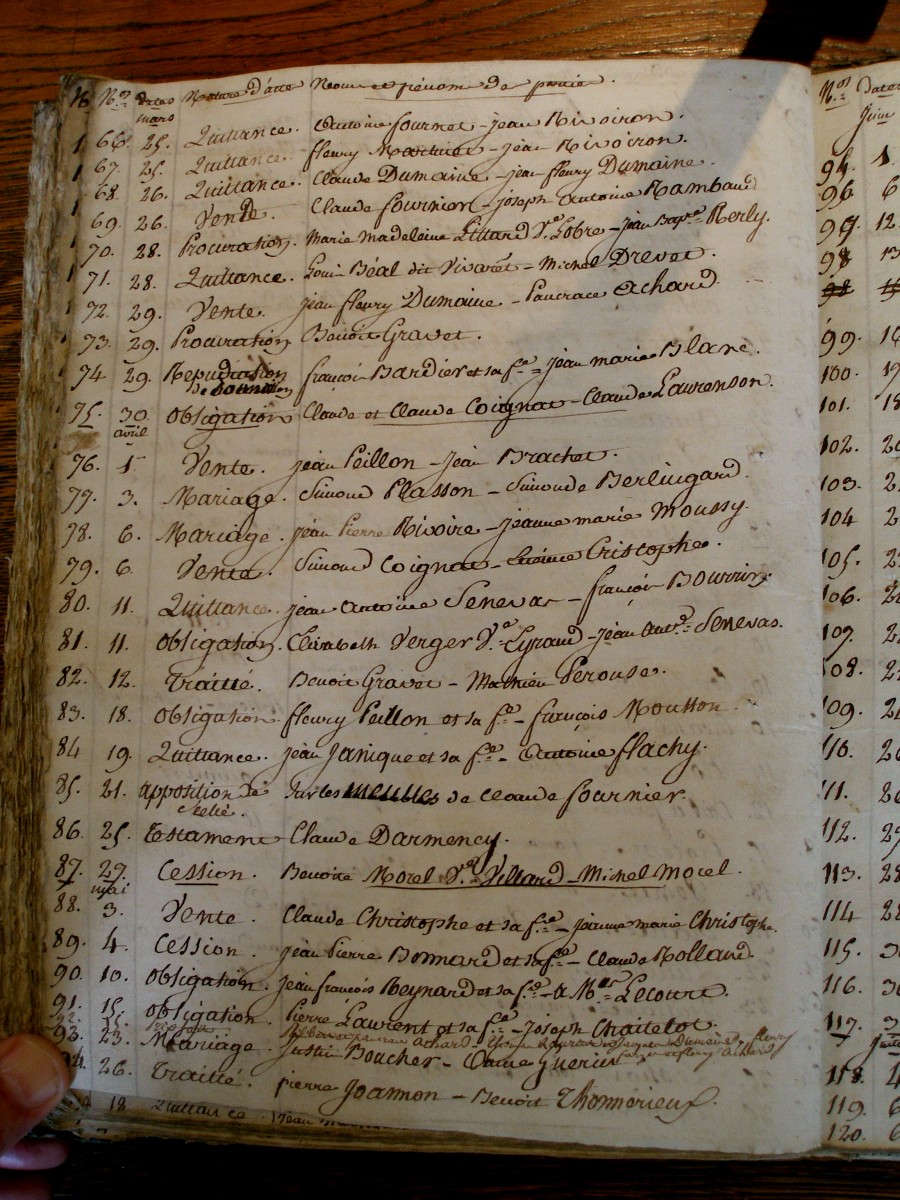 Nos. dates Nature d'acte Noms et prénoms des parties.
mars
66. 25. Quittance. Antoine fournet - jean Rivoiron.
67. 25. Quittance. fleury - jean Rivoiron.
68. 26. Quittance. Claude Dumaine - jean fleury Dumaine.
69. 26. Vente. Claude fournion - joseph antoine Rambaud
70. 28. Procuration. Marie Madeleine Vve. - jean Bapte. Merly.
71. 28. Quittance. Louis Béal dit Vivarêt - Michel Drevet.
72. 29. Vente. jean fleury Dumaine - Pancrace achard.
73. 29. Procuration Benoit Gravet.
74 29. Repudiation françois Bardier et sa fe. = jean marie Blanc.
de
75. 30. obligation Claude et Claude Coignat - Claude Laurenson.
avril
76. 1. Vente. jean Peillon - jean Brachet.
77. 3. Mariage. Simond Plasson - Simonde Berlingard.
78. 6. Mariage. jean Pierre Rivoire - jeanne marie Moussy.
79. 6. Vente. Simond Coignat - Cristophe.
80. 11. Quittance. jean antoine Senevas - françois Bourrin.
81. 11. obligation. Elisabeth Verger Ve. Eyraud - jean antne. Senevas.
82. 12. traitté. Benoit Gravet - Mathieu Perouse.
83. 18. obligation. fleury Peillon et sa fe. - françois Moutton.
84 19. Quittance. jean Janique et sa fe. - antoine flachy.
85. 21. apposition de sur les meubles de claude fournier.
scellé.
86. 25. testament Claude Darmency.
87. 27. Cession. Benoite Morel Ve. Villard - Michel Morel.
mai
88. 3. Vente. Claude Christophe et sa fe. - jeanne marie Christophe.
89. 4. Cession jean Pierre Bonnard et sa fe. - Claude Rolland.
90. 10. obligation. jean françois Reynard et sa fe. - a Mr. Lecourt.
91. 15. obligation. Pierre Laurent et sa fe. - joseph Chaitelot.
93. 23. Mariage. Justin Boucher - Guerin
94. 26. traitté. pierre Joannon - Benoit Thonnerieux.
18 Quittance.
Nos. Dates
Juin
1.
96 6
97. 12
98 13
98
99. 16
100. 19
101. 18
102. 2
103. 2
104 2
105. 2
106. 2
107. 2
108. 2
109. 2
110. 26
111. 26
112. 27
113. 28
114 28
115. 3
116. 3
117. 3
118. 4
119. 6
120. 6